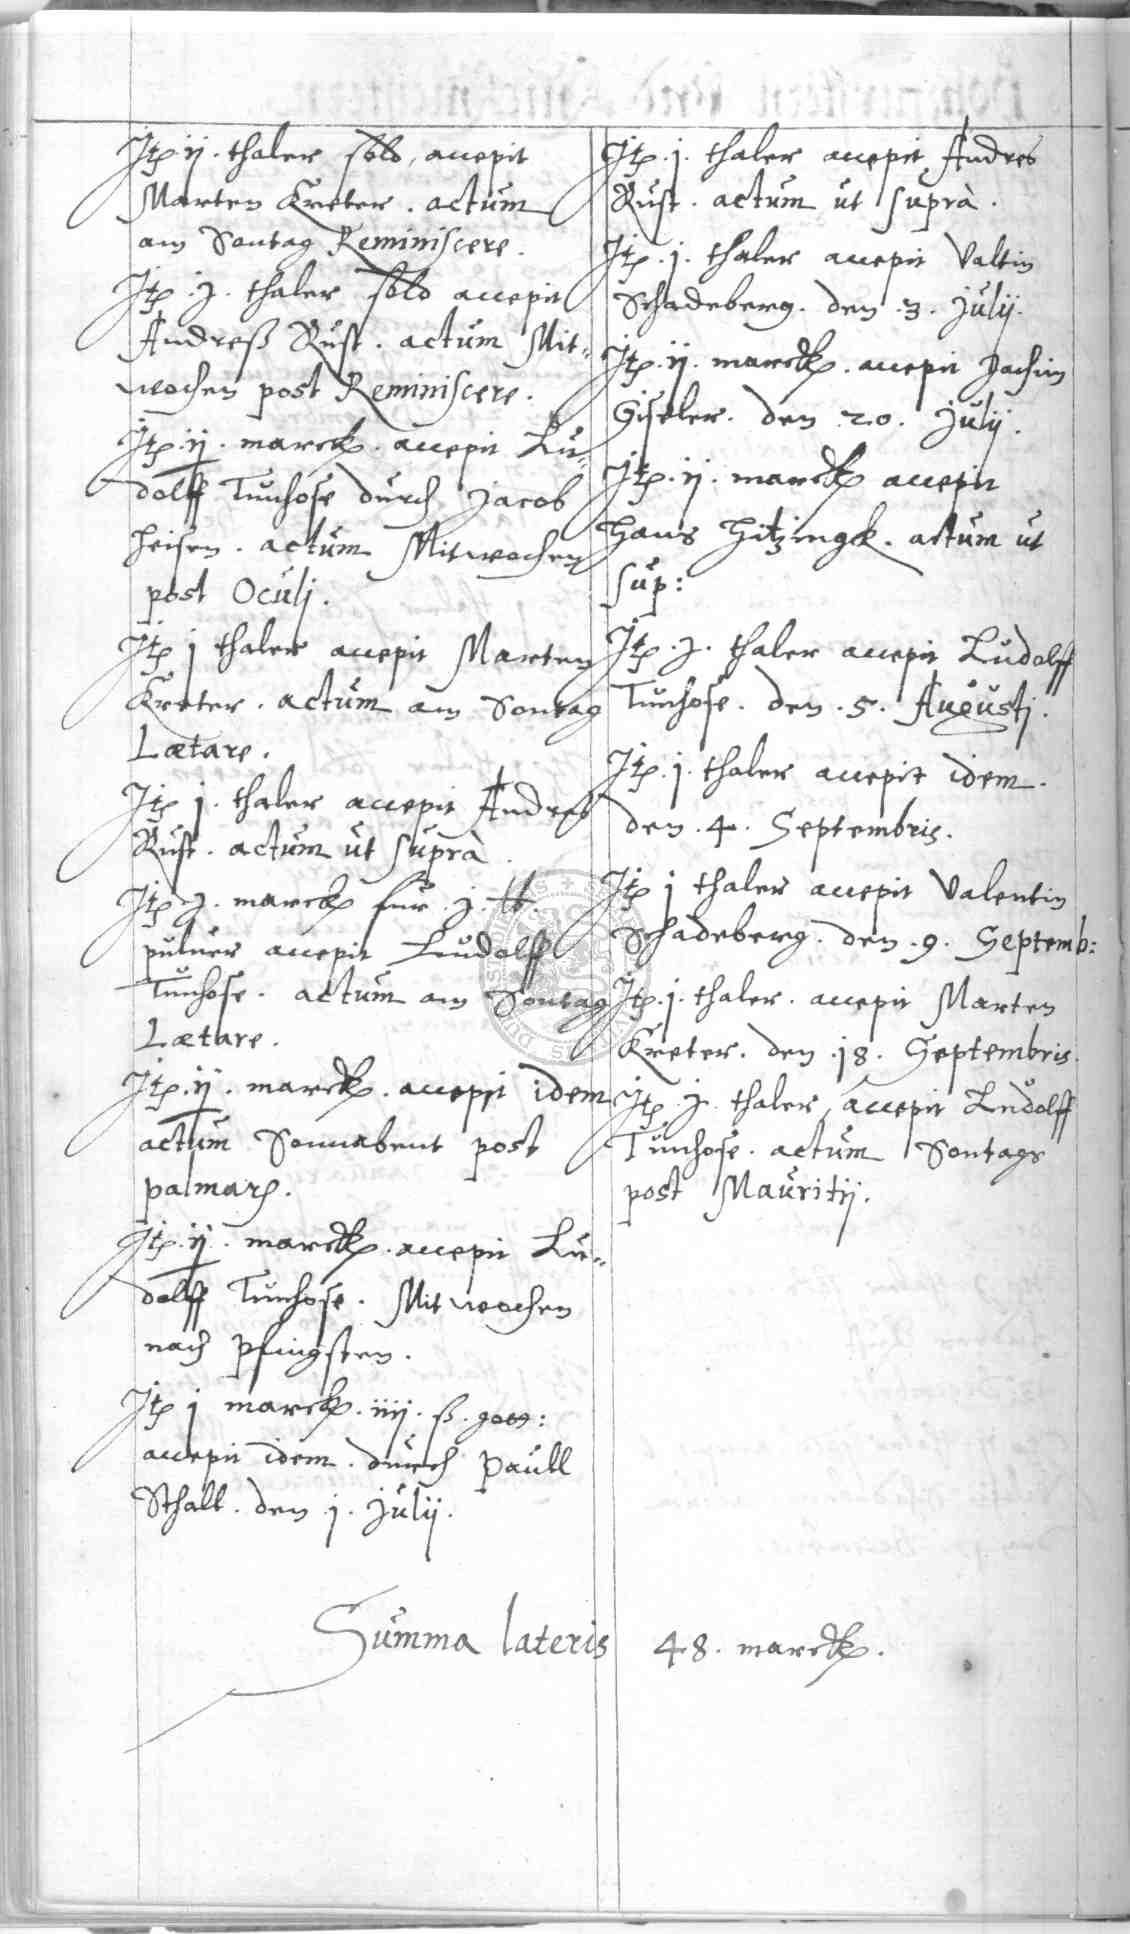 Itp ij. thaler solo, accepit
Marten Kreter. actum
am Sontag Reminiscere.
Itp. j. thaler solo accepit
Andreß Rust. actum Mit=
wochen post Reminiscere.
Itp. ij. marck. accepit Lu=
dolff Tunhose durch Jacob
Heisen. actum Mitwochen
post Oculj.
Itp j thaler accepit Marten
Kreter. actum am Sontag
Lætare.
Itp j. thaler accepit Andres
Rust. actum ut suprà.
Itp j. marck für .j. ℔.
puluer accepit Ludolff
Tunhose. actum am Sontag
Lætare.
Itp. ij. marck. accepit idem
actum Sonnabent post
palmarum.
Itp. ij. marck. accepit Lu=
dolff Tunhose. Mitwochen
nach Pfingsten.
Itp j marck. iiij. ß.
accepit idem. durch Paull
Schall. den .j. Julij.
Itp. j. thaler accepit Andres
Rust. actum ut suprà.
Itp. j. thaler accepit Valtin
Schadeberg. den .3. Julij.
Itp. ij. marck. accepit Jochim
Giseler. den 20. Julij.
Itp. ij. marck accepit
Hans Hitzingk. actum ut
sup:
Itp. j. thaler accepit Ludolff
Tunhose. den .5. Augustj.
Itp. j. thaler accepit idem.
den .4. Septembris.
Itp j thaler accepit Valentin
Schadeberg. den .9. Septemb:
Itp. j. thaler. accepit Marten
Kreter. den .18. Septembris.
Itp. j. thaler, accepit Ludolff
Tunhose. actum Sontags
post Mauritij.
Summa lateris 48. marck.